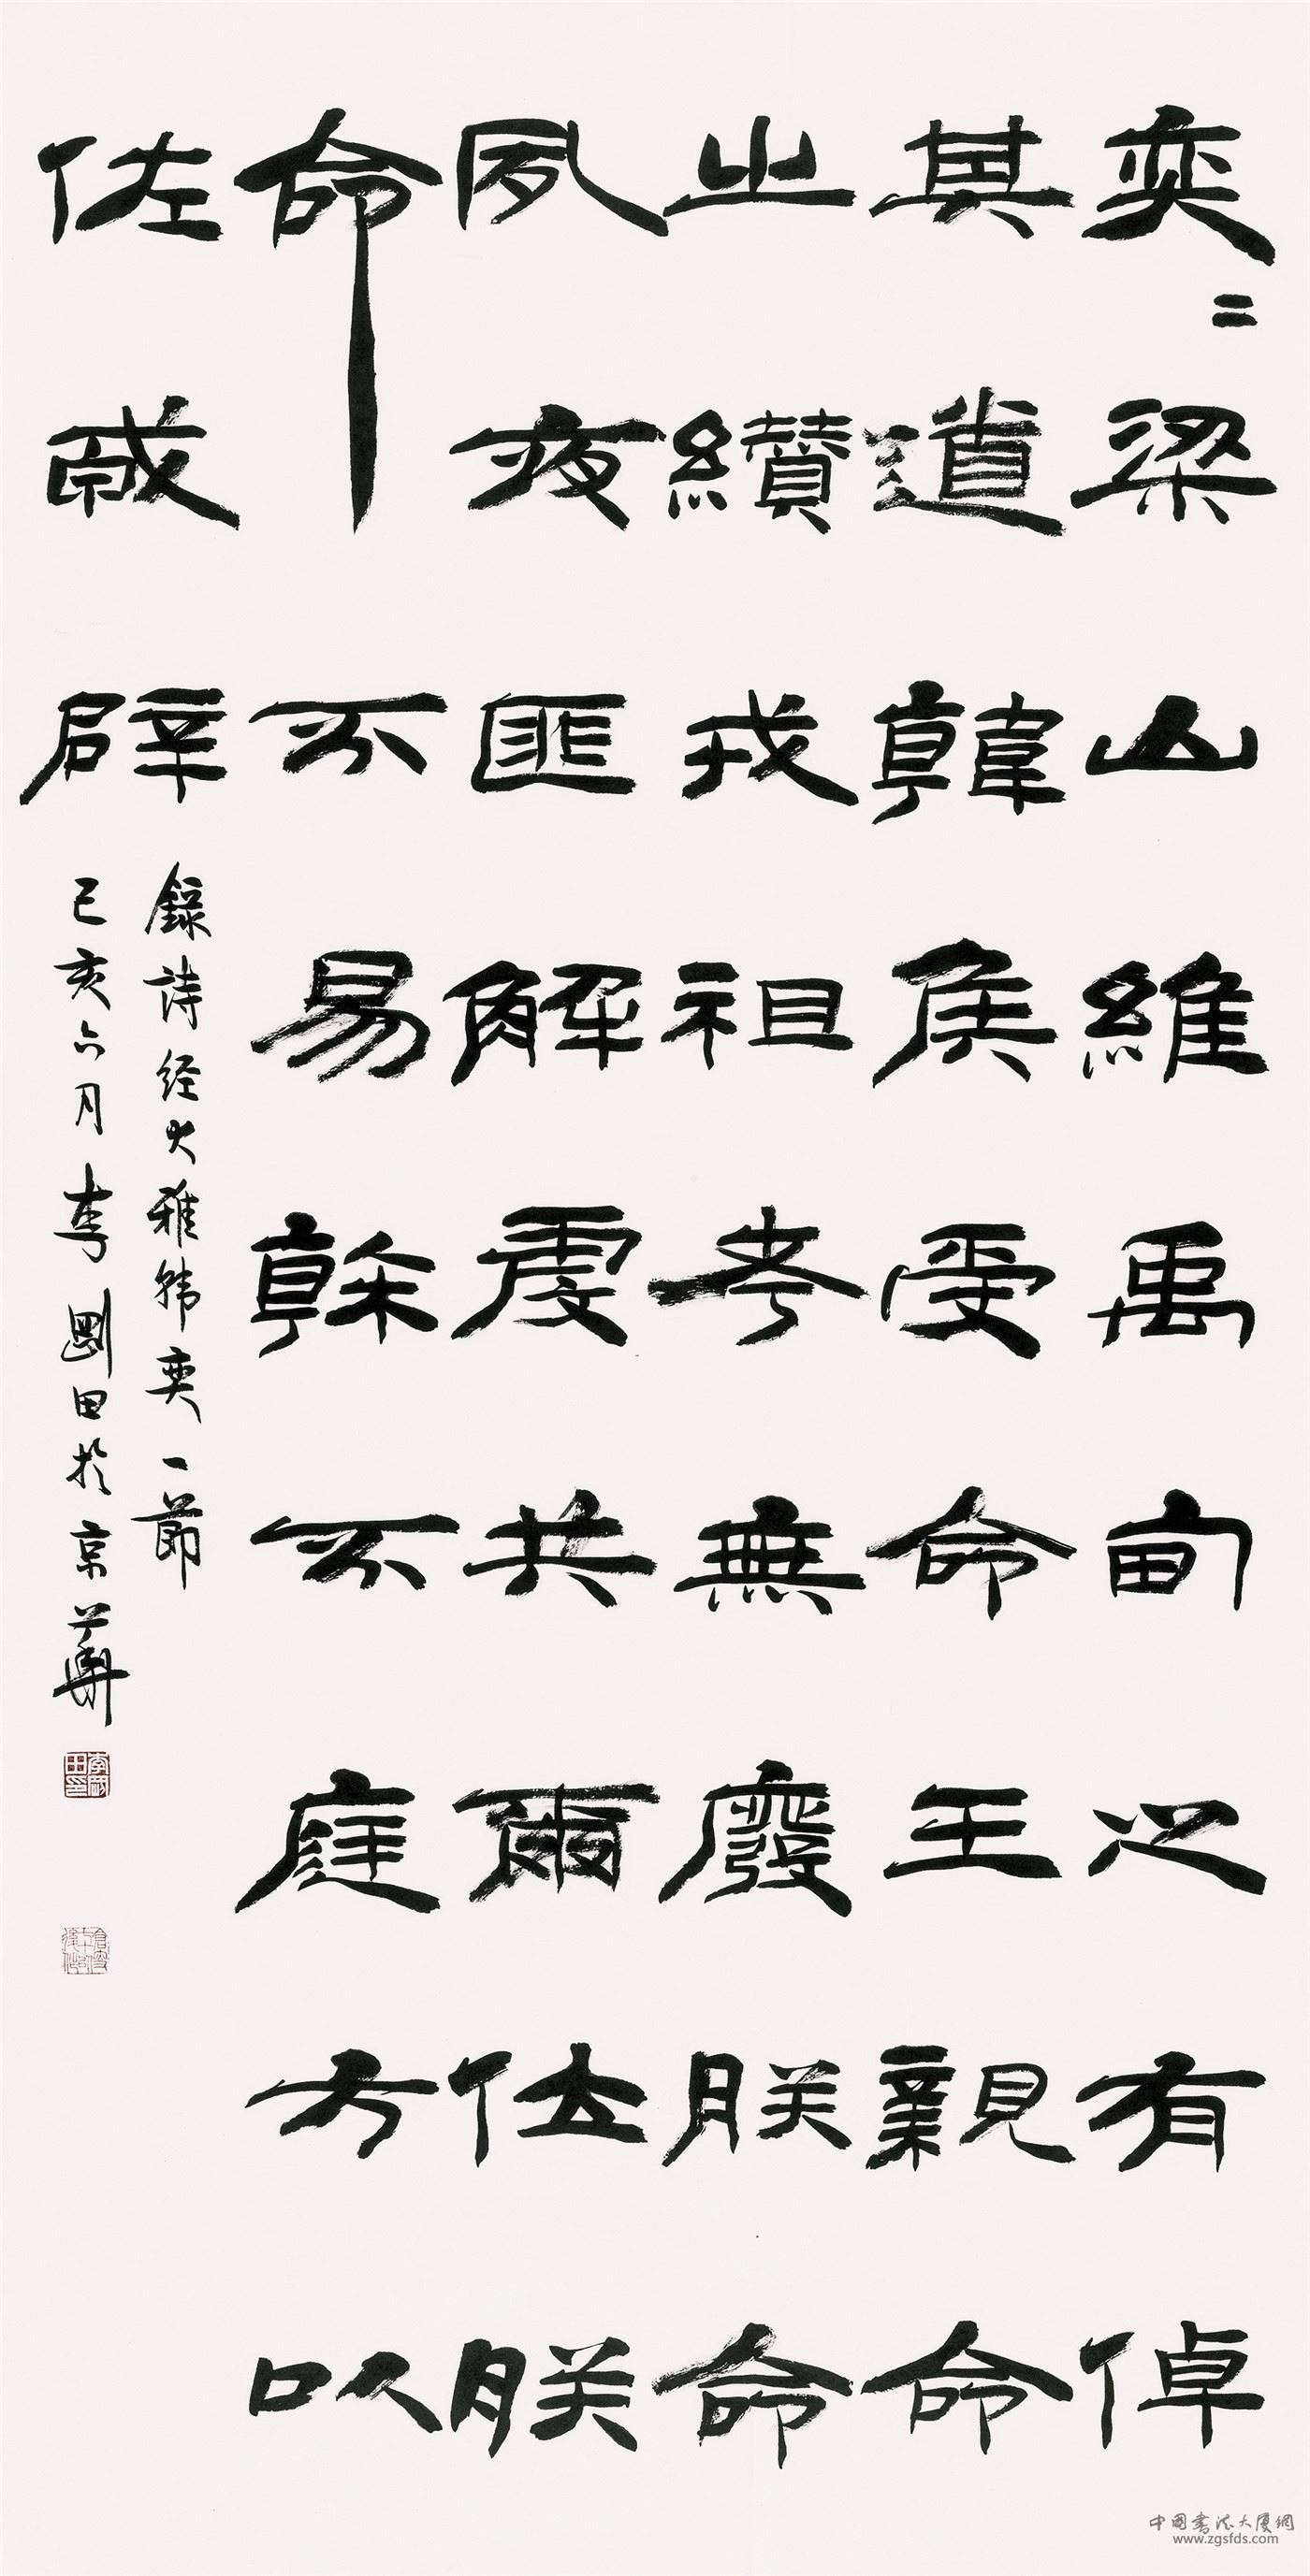 奕〻梁山維禹甸之有倬
其道韓侯受命王親命
之纘戎祖考無廢朕命
夙夜匪解虔共爾位朕
命不易榦不庭方以
佐戎辟
錄詩经大雅韩奕一節
己亥六月李剛田於京華
李剛田印
中國書法大厦網
www.zgsfds.com